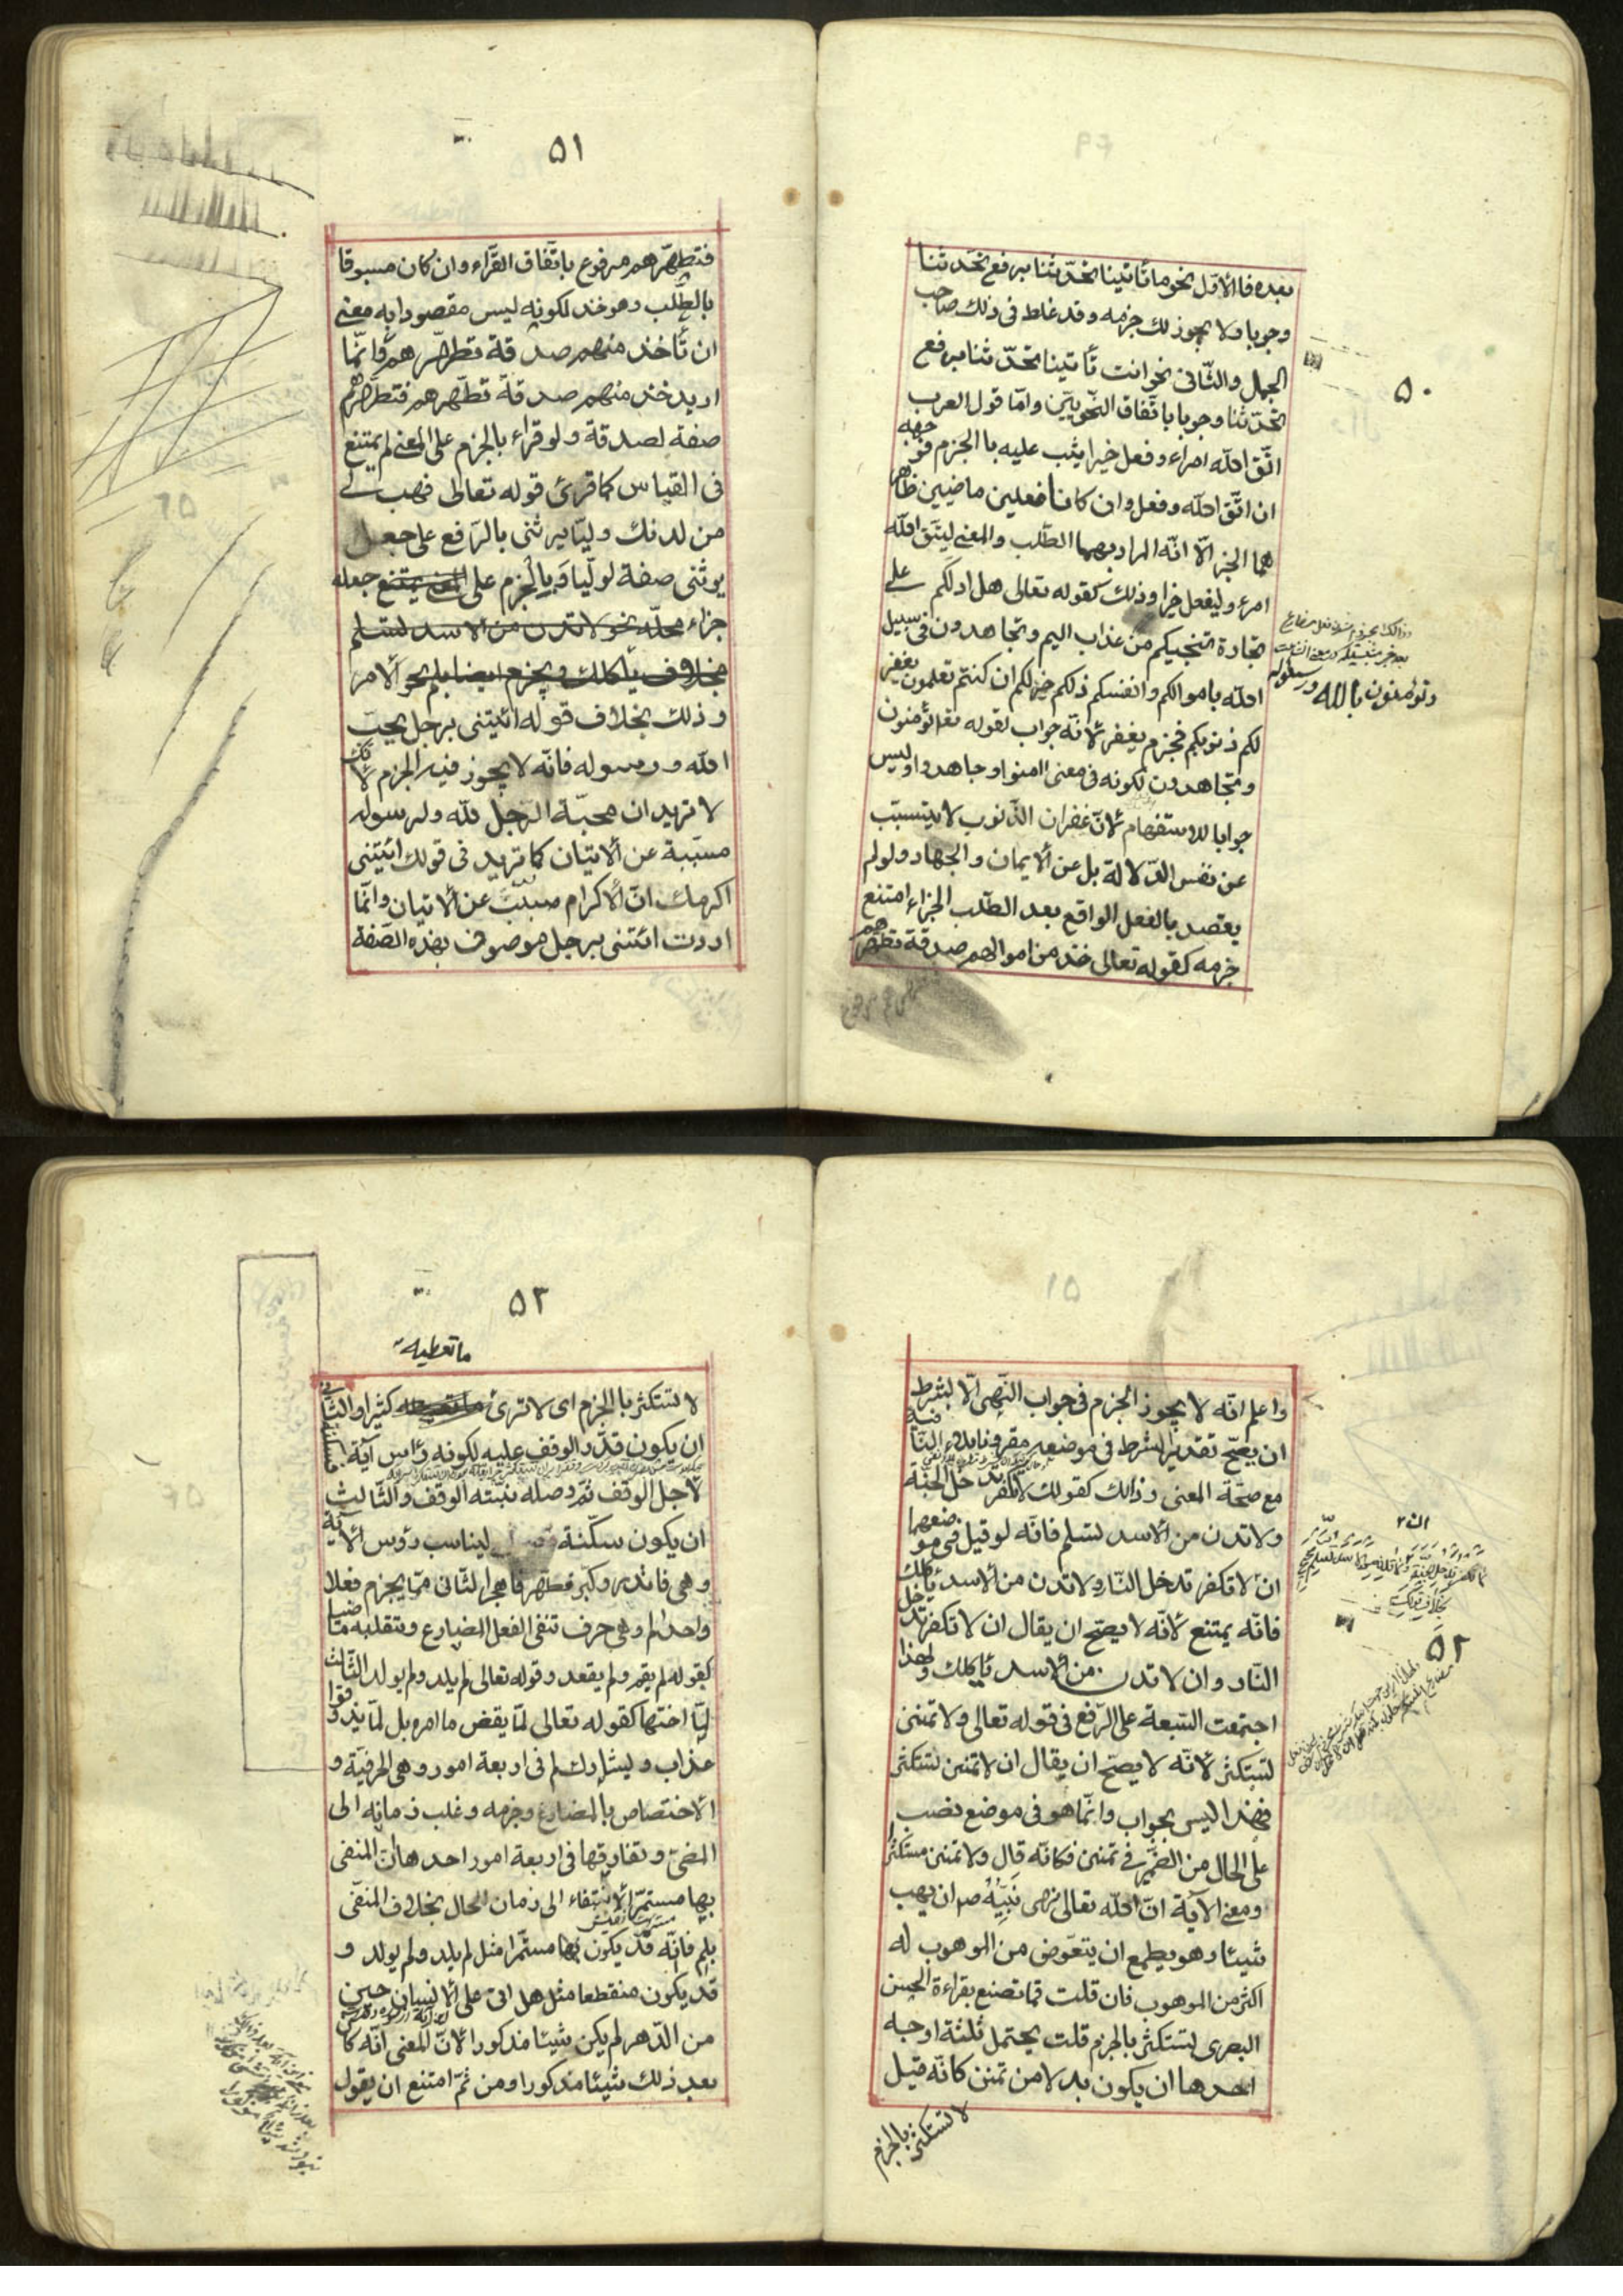 ۵۰
بعده فا الأوّل نحو ما تأتينا تحدّثنا برفع تحدثنا
وجوبا ولا يجوز لك جزمه وقد غلط في ذلك صاحب
الجمل والثّاني نحو انت تأتينا تحدّثنا برفع
تحدّثنا وجوبا باتّفاق النّحويّين وامّا قول العرب
اتّق الله امراء وفعل خيرا يثب عليه با الجزم فوجهه
ان اتّق الله وفعل وان كانا فعلين ماضيين ظاهر
هما الخبر الّا انّه المراد بهما الطّلب والمعنى ليتّق الله
امرء وليفعل خيرا وذلك كقوله تعالى هل ادلكم على
تجارة تنجيكم من عذاب اليم وتجاهدون في سبيل
وتؤمنون بالله ورسوله
الله باموالكم وانفسكم ذلكم خير لكم ان كنتم تعلمون يغفر
لكم ذنوبكم فجزم يغفر لأنّه جواب لقوله تعالى تؤمنون
وتجاهدون لكونه في معنى امنوا وجاهدوا وليس
جوابا للاستفهام لأنّ غفران الذّنوب لا يتسبّب
عن نفس الدّلالة بل عن الأيمان والجهاد ولو لم
يقصد بالفعل الواقع بعد الطّلب الجزاء امتنع
جزمه كقوله تعالى خذ من اموالهم صدقة تطهّرهم
۵۱
فتطهّرهم مرفوع باتّفاق القرّاء وان كان مسبوقا
بالطّلب وهو خذ لكونه ليس مقصودا به معنى
ان تأخذ منهم صدقة تطهّرهم وانّما
اريد خذ منهم صدقة تطهّرهم فتطهّرهم
صفة لصدقة ولو قراء بالجزم على المعنى لم يمتنع
في القياس كما قرئ قوله تعالى فهب لي
من لدنك وليّا يرثني بالرّفع على جعل
يرثني صفة لوليّا وبالجزم على جعله
جزاء
الامر
وذلك بخلاف قوله ائيتني برجل يحبّ
الله ورسوله فانّه لا يجوز فيه الجزم لأنّك
لا تريد ان محبّة الرّجل لله ولرسوله
مسبّبة عن الأتيان كما تريد في قولك ائيتني
اكرمك انّ الأكرام مسبّب عن الأتيان وانّما
اردت ائتني برجل موصوف بهذه الصّفة
۵۲
واعلم انّه لا يجوز الجزم في جواب النّهى الّا بشرط
ان يصحّ تقدير الشرط في موضعه مقرونا بلاء النّافية
مع صحّة المعنى وذالك كقولك لا تكفر تدخل الجنّة
ولا تدن من الأسد تسلم فانّه لو قيل في موضعهما
ان لا تكفر تدخل النّار ولا تدن من الأسد يأكلك
فانّه يمتنع لأنّه لا يصحّ ان يقال ان لا تكفر تدخل
النّار وان لا تدن من الأسد يأكلك ولهذا
اجتمعت السّبعة على الرّفع في قوله تعالى ولا تمنن
تستكثر لأنّه لا يصحّ ان يقال ان لا تمنن تستكثر
فهذا ليس بجواب وانّما هو في موضع نصب
على الحال من الضّمير في تمنن فكانّه قال ولا تمنن مستكثر
ومعنى الآية انّ الله تعالى نهى نبيّه ص ان يهب
شيئا وهو يطمع ان يتعوّض من الموهوب له
اكثر من الموهوب فان قلت فما تصنع بقراءة الحسن
البصرى تستكثر بالجزم قلت يحتمل ثلثة اوجه
احدها ان يكون بدلا من تمنن كانّه قيل
لا تستكثر بالجزم
۵۳
ما تعطيه
لا تستكثر با الجزم اى لا ترى كثيرا والثّاني
ان يكون قدّر الوقف عليه لكونه رأس آية فسكنه
لأجل الوقف ثمّ وصله بنيّته الوقف والثّالث
ان يكون سكّنه ليناسب رؤس الآية
وهي فانذر وكبّر فطهّر فاهجر الثّاني ممّا يجزم فعلا
واحدا لم وهي حرف تنفى الفعل المضارع وتقلبه ماضيا
كقوله لم يقم ولم يقعد وقوله تعالى لم يلد ولم يولد الثّالث
لمّا اختها كقوله تعالى لمّا يقض ما امره بل لمّا يذوقوا
عذاب ويشارك لم في اربعة امور وهي الحرفيّة و
الأختصاص بالمضارع وجزمه وقلب زمانه الى
المضىّ وتفارقها في اربعة امور احدها انّ المنفى
بها مستمرّ الأنتفاء الى زمان الحال بخلاف المنفّى
بلم فانّه قد يكون مستمّرا مثل لم يلد ولم يولد و
قد يكون منقطعا مثل هل اتى على الأنسان حين
من الدّهر لم يكن شيئا مذكورا لأنّ المعنى انّه كان
بعد ذلك شيئا مذكورا ومن ثمّ امتنع ان يقول